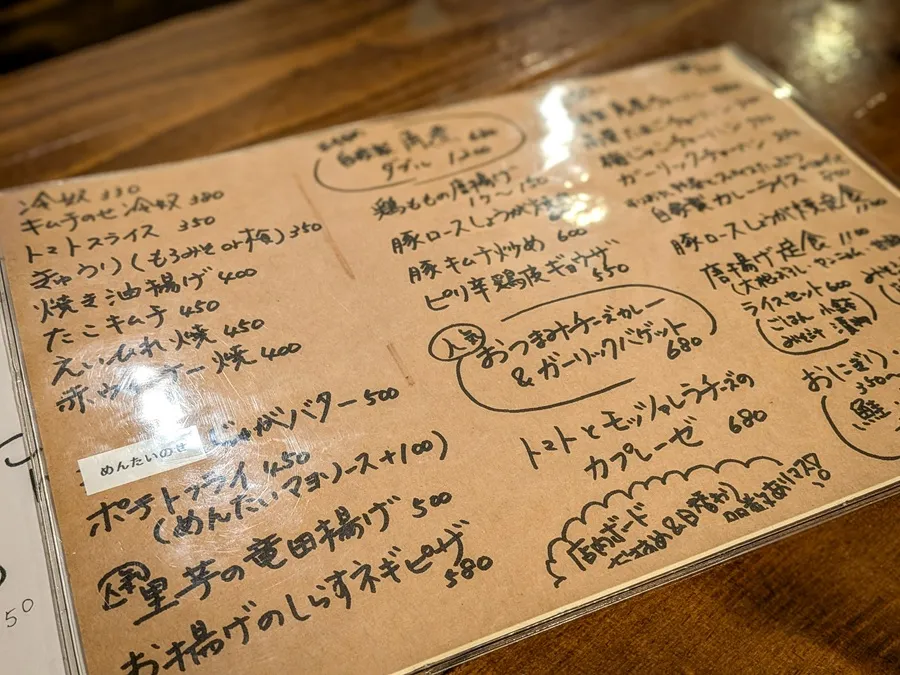 冷奴 330
キムチのせ冷奴 380
トマトスライス 350
きゅうり(もろみそ or 梅) 350
焼き油揚げ 400
たこキムチ 450
えいひれ焼 450
赤ウィンナー焼 400
めんたいのせ じゃがバター 500
ポテトフライ 450
(めんたいマヨソース+100)
人気 里芋の竜田揚げ 500
お揚げのしらすネギピザ 580
自家製
ダブル 1200
鶏ももの唐揚げ
豚ロースしょうが焼
豚キムチ炒め 600
ピリ辛鶏皮ギョウザ 550
人気 おつまみチーズカレー
&ガーリックバゲット 680
トマトとモッツァレラチーズの
カプレーゼ 680
店内ボード
おすすめ&日替わり
品書きあります
ガーリックチャーハン
自家製カレーライス
豚ロースしょうが焼定食
唐揚げ定食 1100
ライスセット 600
(ごはん 小鉢
みそ汁 漬物)
おにぎり
鮭
50